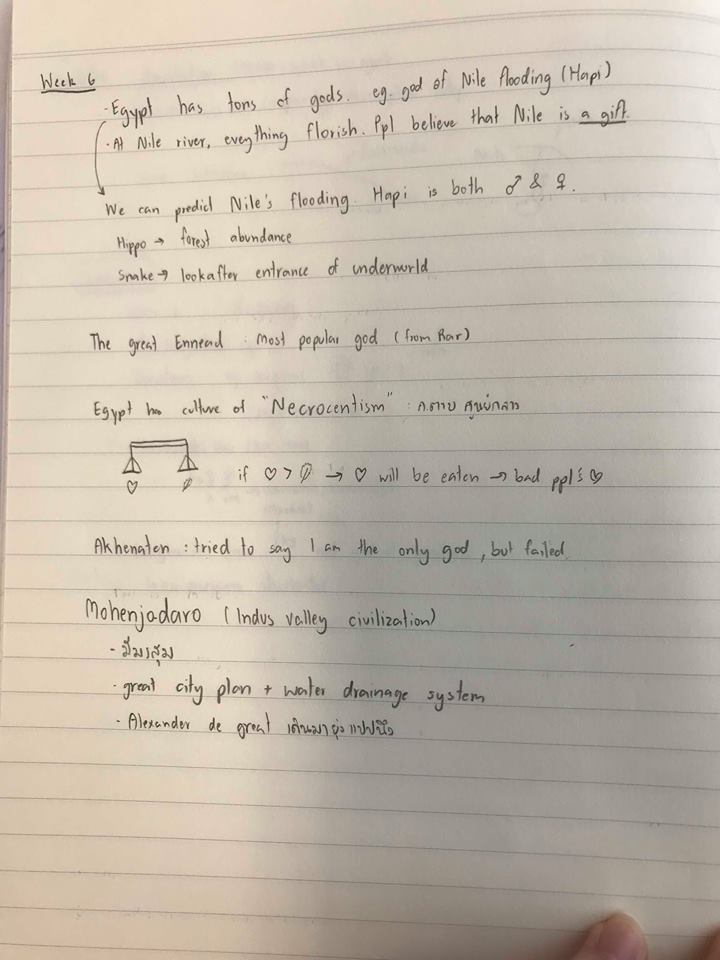 Week 6
· Egypt has tons of gods. eg. god of Nile flooding (Hapi)
· At Nile river, eveything florish. Ppl believe that Nile is a gift.
We can predict Nile's flooding. Hapi is both ♂ & ♀.
Hippo → forest abundance
Snake → lookafter entrance of underworld
The great Ennead : Most popular god (from Rar)
Egypt has culture of "Necrocentism" : ค.ตาย ศูนย์กลาง
if ♡ > → ♡ will be eaten → bad ppl's ♡
Akhenaten : tried to say I am the only god, but failed
Mohenjadaro (Indus valley civilization)
- มีมรสุม
- great city plan + water drainage system
- Alexander de great เดินมายุ่งแปปนึง